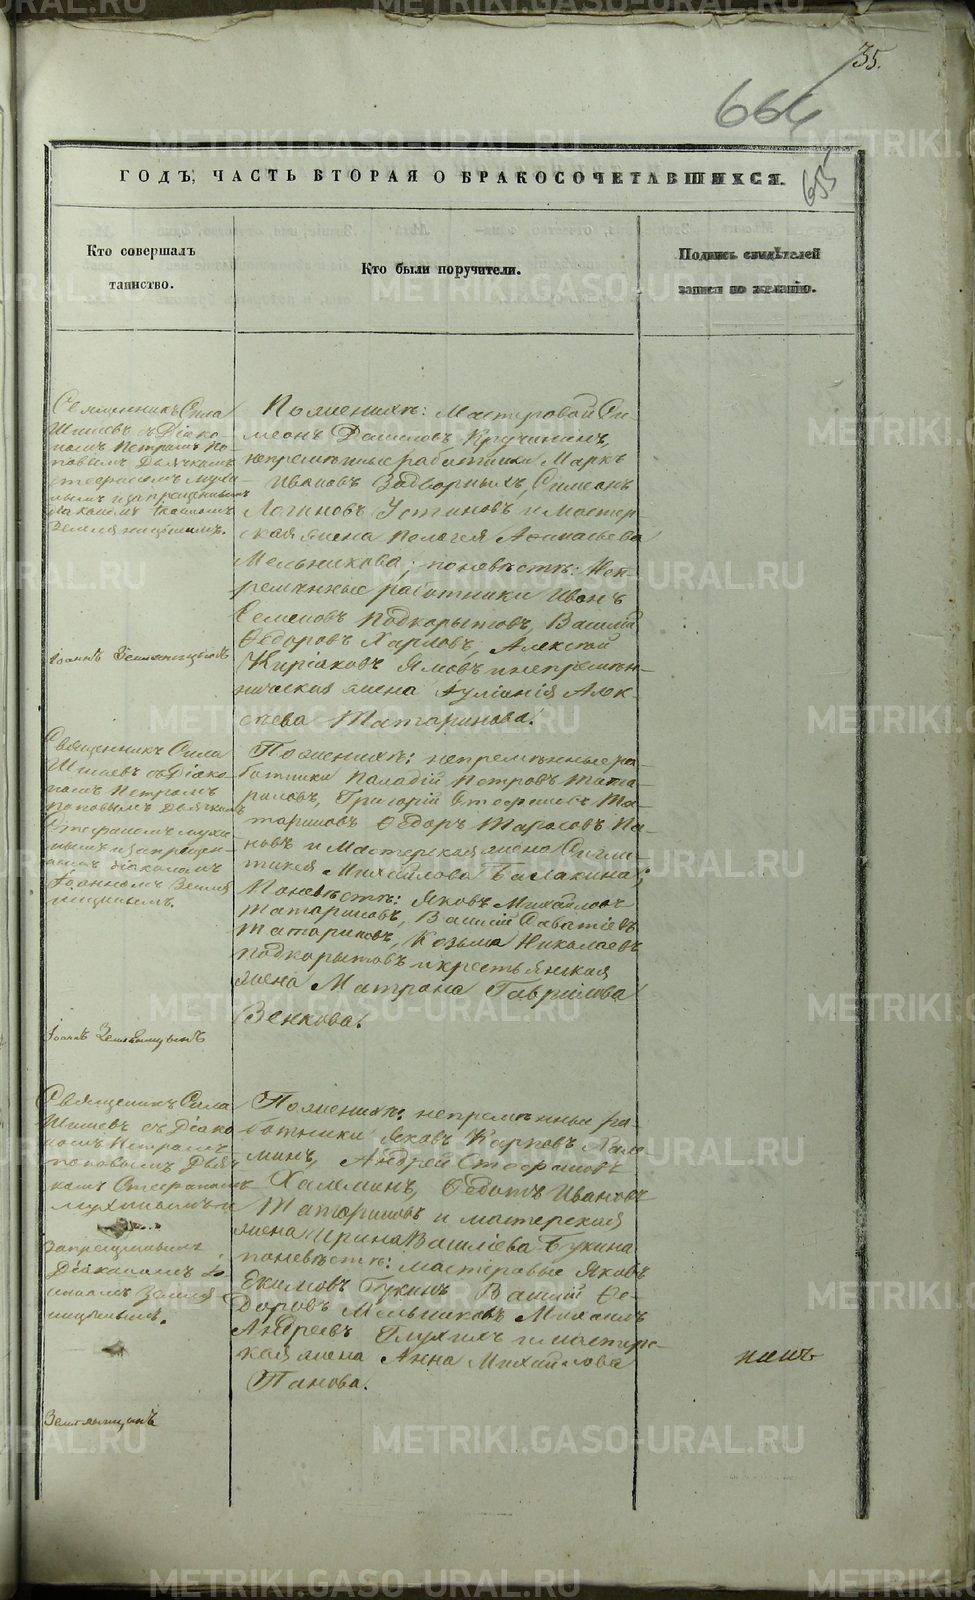 35.
664
655
ГОДЪ, ЧАСТЬ ВТОРАЯ О БРАКОСОЧЕТАВШИХСЯ.
Кто совершалъ
таинство.
Кто были поручители.
Подпись свидѣтелей
записи по желанію.
Священникъ Сила
Шишевъ съ Діако-
номъ Петромъ По-
повымъ Дьячкомъ
Стефаномъ Мухи-
нымъ и запрещеннымъ
Діакономъ Іоанномъ
Земляницынымъ.
Іоаннъ Земляницынъ
По женихѣ: Мастеровой Си-
меонъ Даниловъ Кручининъ,
непремѣнные работники Маркъ
Ивановъ Задворныхъ, Симеонъ
Логиновъ Устиновъ и мастер-
ская жена Пелагея Афанасьева
Мельникова; по невѣстѣ: Неп-
ремѣнные работники Иванъ
Семеновъ Подкорытовъ, Василій
Ѳедоровъ Харловъ, Алексѣй
Киріаковъ Ямовъ и непремѣн-
ническая жена Іуліанія Алек-
сѣева Татаринова.
Священникъ Сила
Шишевъ съ Діако-
номъ Петромъ
Поповымъ Дьячкомъ
Стефаномъ Мухи-
нымъ и запрещен-
нымъ діакономъ
Іоанномъ Земля
ницынымъ.
Іоаннъ Земляницынъ
По женихѣ: непремѣнные ра-
ботники Паладій Петровъ Тата-
риновъ, Григорій Стефановъ Та-
тариновъ Ѳедоръ Тарасовъ Па-
новъ и Мастерская жена
Михайлова Балакина;
По невѣстѣ: Яковъ Михайловъ
Татариновъ, Василій Саватіевъ
Татариновъ, Козьма Николаевъ
Подкорытовъ и крестьянская
жена Матрона Гаврилова
Зенкова.
Священникъ Сила
Шишевъ съ Діако
номъ Петромъ
Поповымъ Дьяч
комъ Стефаномъ
Мухинымъ и
запрещеннымъ
Діакономъ Іо
анномъ Земля
ницынымъ.
Земляницынъ
По женихѣ: непремѣнные ра-
ботники Яковъ Карповъ Халя-
минъ, Андрей Стефановъ
Халяминъ, Ѳедотъ Ивановъ
Татариновъ и мастерская
жена Ирина Василіева Букина
по невѣстѣ: мастеровые Яковъ
Екимовъ Букинъ Василій Ѳе-
доровъ Мельниковъ Михаилъ
Андреевъ Глухихъ и мастерс-
кая жена Анна Михайлова
Панова.